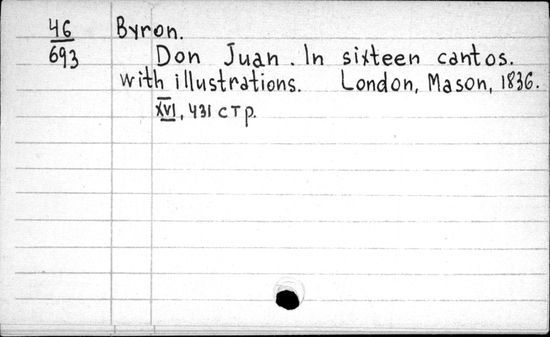 46 Byron.
693 Don Juan. In sixteen cantos.
with illustrations. London, Mason, 1836.
XVI, 431 стр.